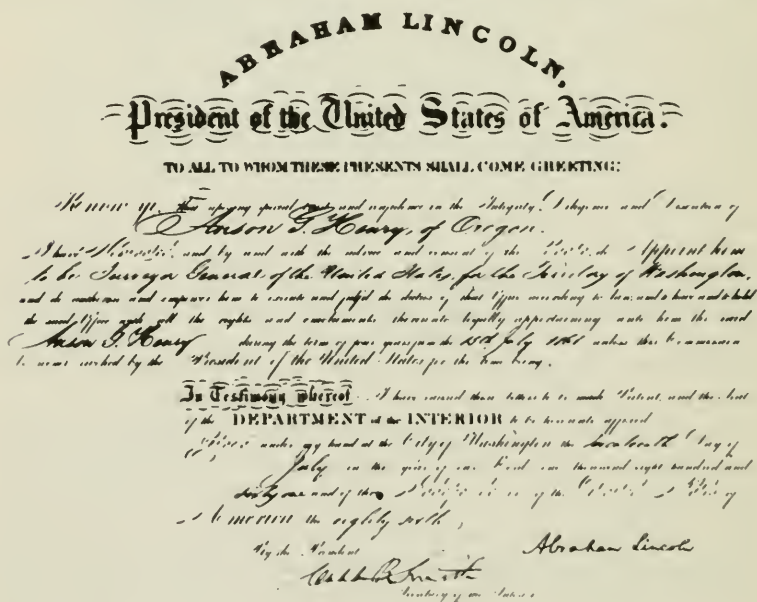 ABRAHAM LINCOLN,
President of the United States of America.
TO ALL TO WHOM THESE PRESENTS SHALL COME GREETING:
Know ye, That reposing special trust and confidence in the Integrity, Diligence and Discretion of
Anson G. Henry, of Oregon.
I have Nominated, and by and with the advice and consent of the Senate, do Appoint him
to be Surveyor General of the United States, for the Territory of Washington,
and do authorize and empower him to execute and fulfil the duties of that Office according to law; and to have and to hold
the said Office with all the rights and emoluments thereunto legally appertaining unto him the said
Anson G. Henry during the term of four years from the July 1861 unless this Commission
be sooner revoked by the President of the United States for the time being.
In Testimony whereof, I have caused these letters to be made Patent, and the Seal
of the DEPARTMENT of the INTERIOR to be hereunto affixed
Given under my hand at the City of Washington the Day of
July in the year of our Lord one thousand eight hundred and
sixty one and of the Independence of the United States of
America the eighty sixth,
By the President Abraham Lincoln
Caleb B. Smith
Secretary of the Interior